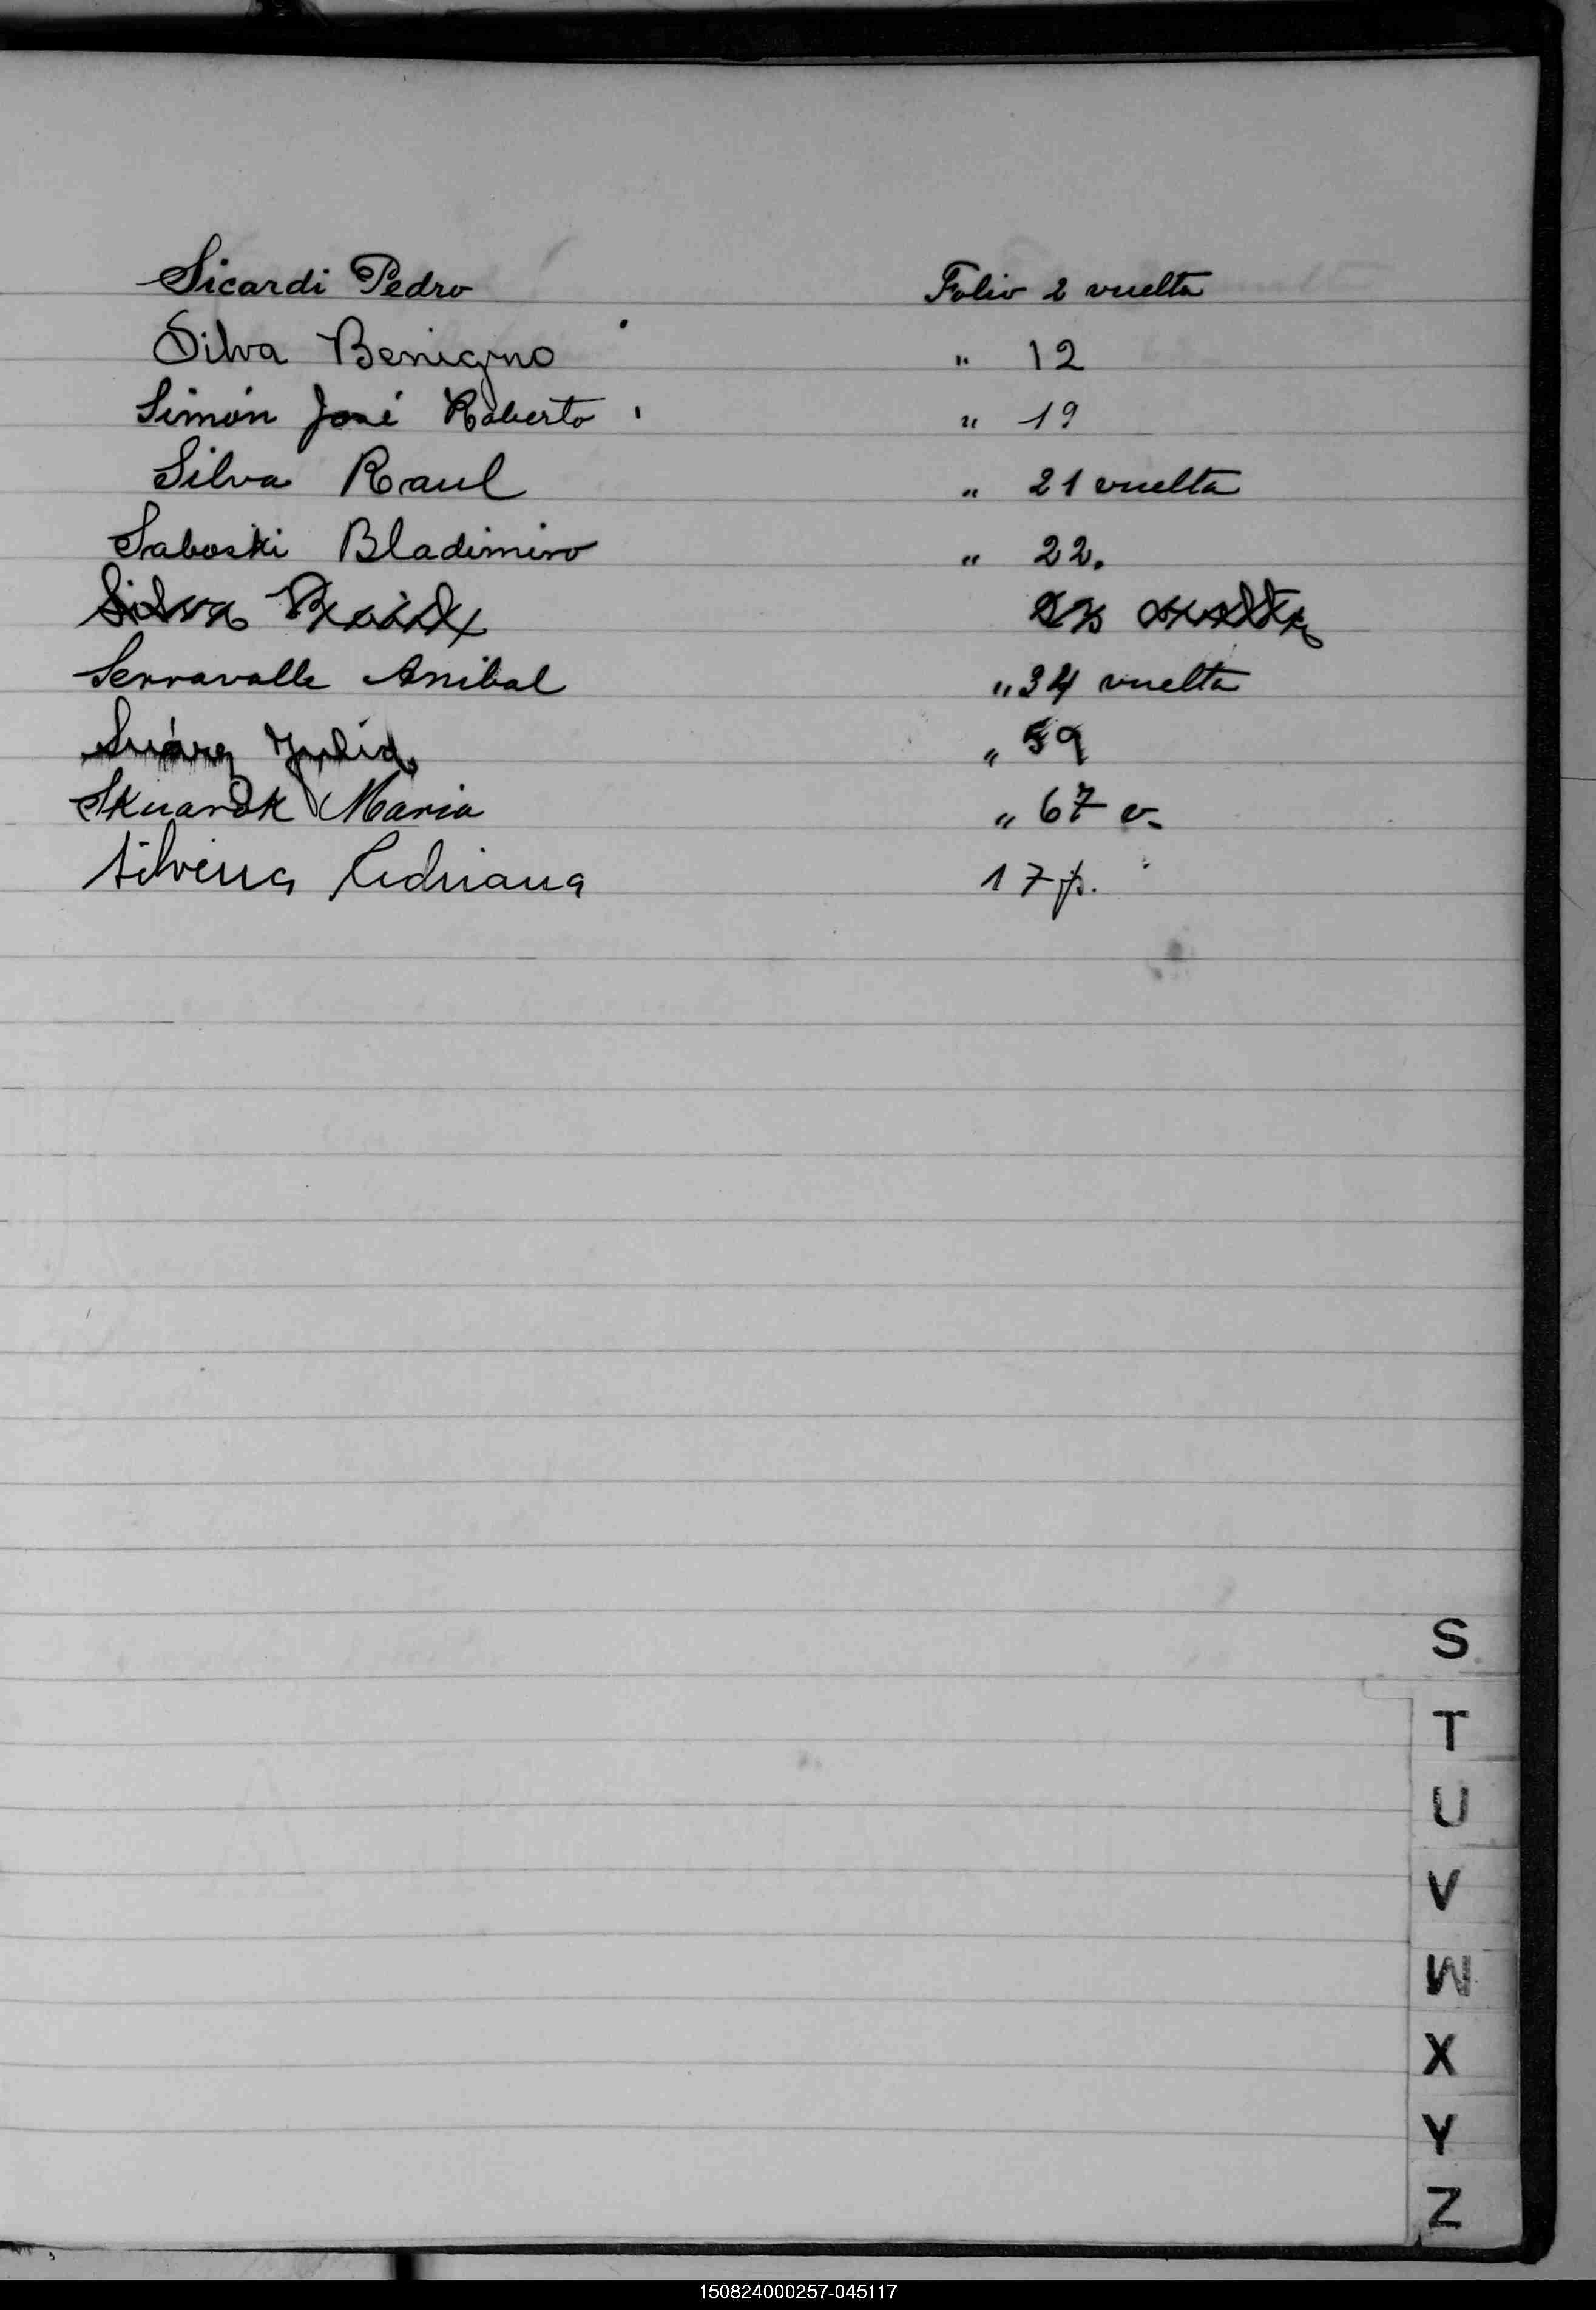 Sicardi Pedro Folio 2 vuelta
Silva Benigno " 12
Simón José Roberto " 19
Silva Raul " 21 vuelta
Saboski Bladimiro " 22.
Silva
Serravalle Anibal " 34 vuelta
Suárez Julia " 59
Skuarok Maria " 67 v.
Silveira Adriana 17 p.
S
T
U
V
W
X
Y
Z
150824000257-045117